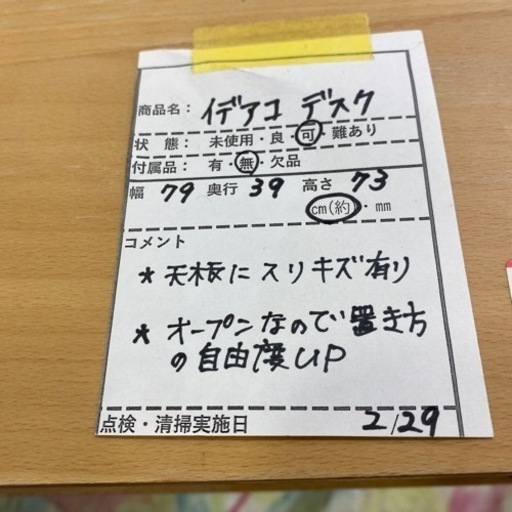 商品名：イデアコ デスク
状　態：　未使用・良・可・難あり
付属品：有・無・欠品
幅 79 奥行 39 高さ 73
cm(約)・mm
コメント
* 天板にスリキズ有り
* オープンなので置き方
の自由度UP
点検・清掃実施日 2/29